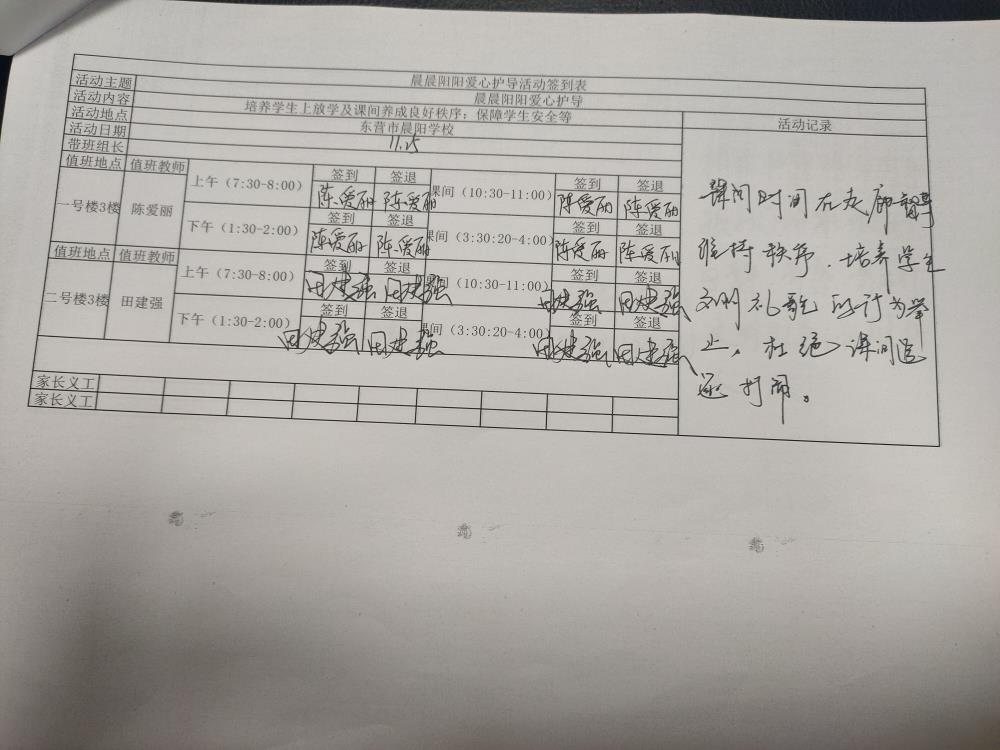 晨晨阳阳爱心护导活动签到表
活动主题 晨晨阳阳爱心护导
活动内容 培养学生上放学及课间养成良好秩序；保障学生安全等
活动地点 东营市晨阳学校 活动记录
活动日期 11.25
带班组长
值班地点 值班教师 签到 签退 签到 签退
一号楼3楼 陈爱丽 上午（7:30-8:00） 陈爱丽 陈爱丽 课间（10:30-11:00） 陈爱丽 陈爱丽
签到 签退 签到 签退
下午（1:30-2:00） 陈爱丽 陈爱丽 课间（3:30:20-4:00） 陈爱丽 陈爱丽
值班地点 值班教师 签到 签退 签到 签退
二号楼3楼 田建强 上午（7:30-8:00） 田建强 田建强 课间（10:30-11:00） 田建强 田建强
签到 签退 签到 签退
下午（1:30-2:00） 田建强 田建强 课间（3:30:20-4:00） 田建强 田建强
家长义工
家长义工
课间时间在走廊督导
维持秩序，培养学生
文明礼貌的行为举
止，杜绝课间追
逐打闹。